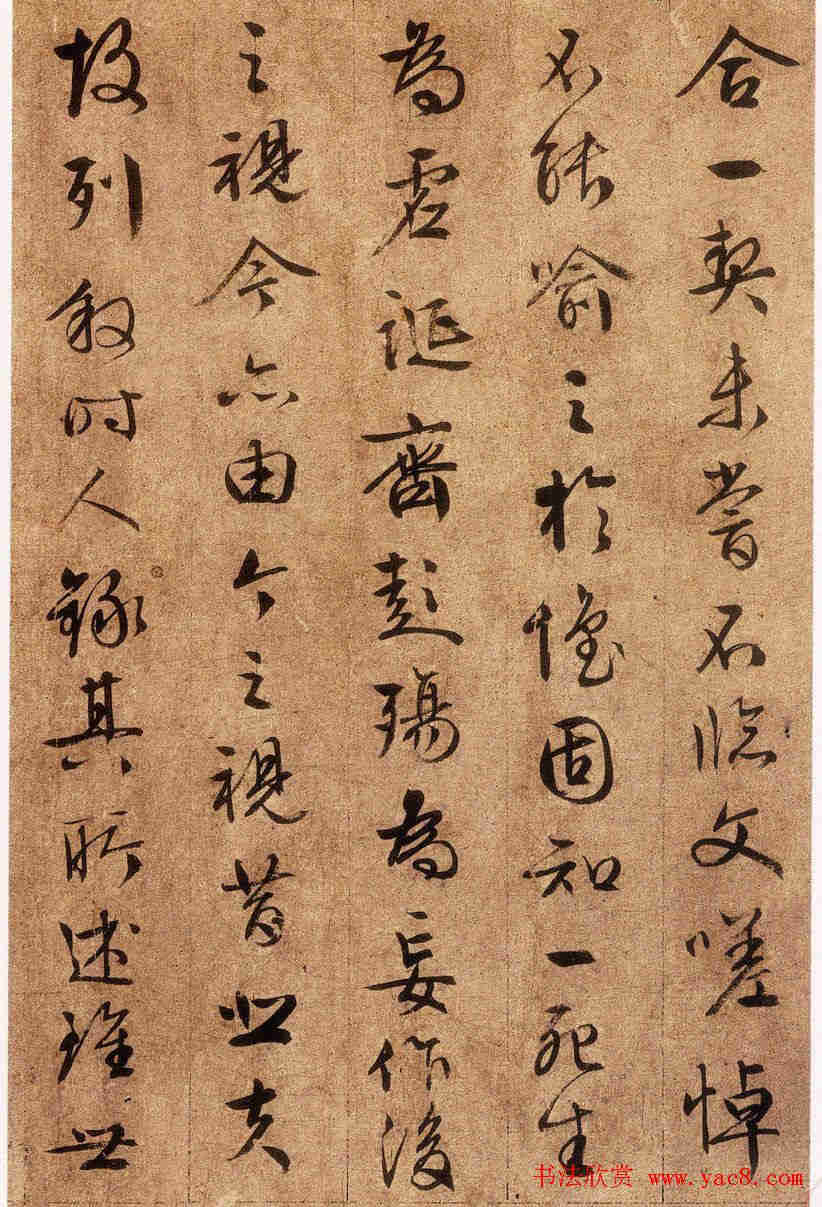 合一契未嘗不臨文嗟悼
不能喻之於懷固知一死生
為虛誕齊彭殤為妄作後
之視今亦由今之視昔悲夫
故列敘時人錄其所述雖世
书法欣赏 www.yac8.com